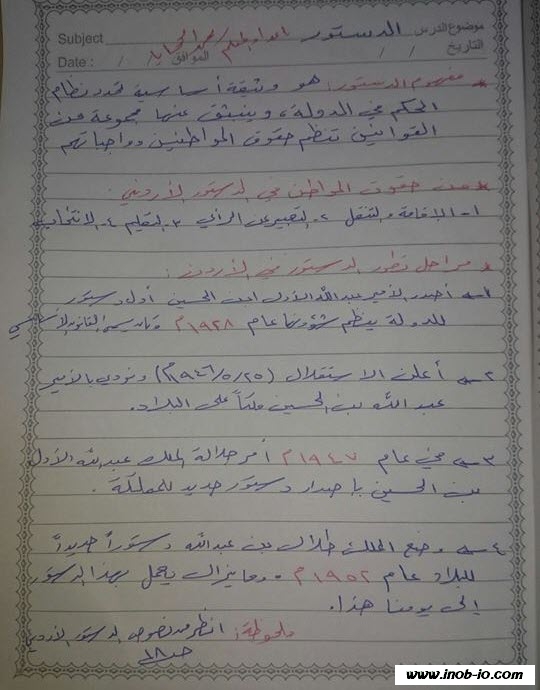 موضوع الدرس الدستور اعداد المعلم محمد Subject
التاريخ / / الموافق / / Date :
* مفهوم الدستور: هو وثيقة أساسية تحدد نظام
الحكم في الدولة، وينبثق عنها مجموعة من
القوانين تنظم حقوق المواطنين وواجباتهم
* من حقوق المواطن في الدستور الأردني:
١- الإقامة والتنقل ٢- التعبير عن الرأي ٣- التعليم ٤- الانتخاب
* مراحل تطور الدستور في الأردن:
١- أصدر الأمير عبد الله الأول ابن الحسين أول دستور
للدولة ينظم شؤونها عام ١٩٢٨م وكان يسمى القانون الأساسي
٢- أعلن الاستقلال (٢٥/٥/١٩٤٦م) ونودي بالأمير
عبد الله بن الحسين ملكاً على البلاد.
٣- في عام ١٩٤٧م أمر جلالة الملك عبد الله الأول
بن الحسين بإصدار دستور جديد للمملكة.
٤- وضع الملك طلال بن عبد الله دستوراً جديداً
للبلاد عام ١٩٥٢م وما يزال يعمل بهذا الدستور
إلى يومنا هذا.
ملحوظة: انظر من نصوص الدستور الأردني
ص ١٨
www.inob-io.com